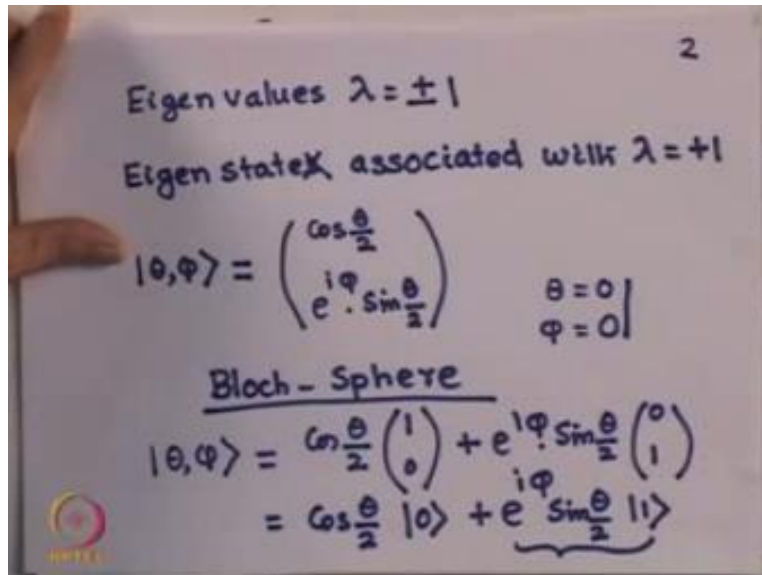 2
Eigen values λ = ± 1
Eigen state associated with λ = +1
|θ,φ> = ( cos θ/2
e^{iφ}. sin θ/2 )
θ = 0
φ = 0
Bloch - Sphere
|θ,φ> = Cos θ/2 (1 0) + e^{iφ}. Sin θ/2 (0 1)
= Cos θ/2 |0> + e^{iφ} Sin θ/2 |1>
NPTEL